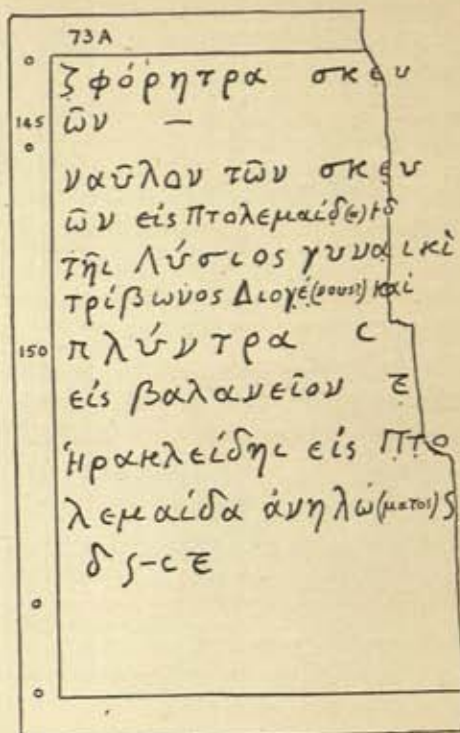 73 A
ζ φόρητρα σκευ
145 ῶν —
ναῦλον τῶν σκευ
ῶν εἰς Πτολεμαίδ(ε)
τῆι Λύσιος γυναικὶ
τρίβωνος Διογέ(νους) καὶ
150 πλύντρα c
εἰς βαλανεῖον
Ἡρακλείδηι εἰς Πτο
λεμαίδα ἀνηλώ(ματος) ς
δ ς-c